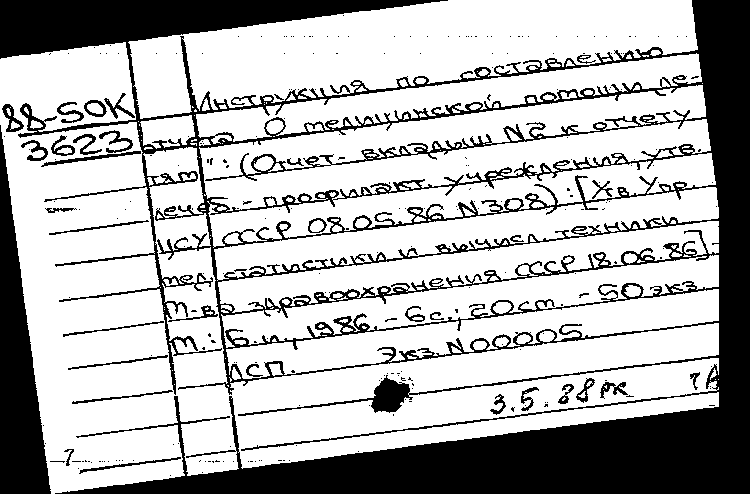 88-50К
3623
Инструкция по составлению
отчета „О медицинской помощи де-
тям": (Отчет-вкладыш N2 к отчету
лечеб.-профилакт. учреждения, утв.
ЦСУ СССР 08.05.86 N308): [Утв. Упр.
мед. статистики и вычисл. техники
М-ва здравоохранения СССР 18.06.86].-
М.: Б.и., 1986. - 6с.; 20см. - 50экз.
ДСП. Экз. N00005.
3.5.88